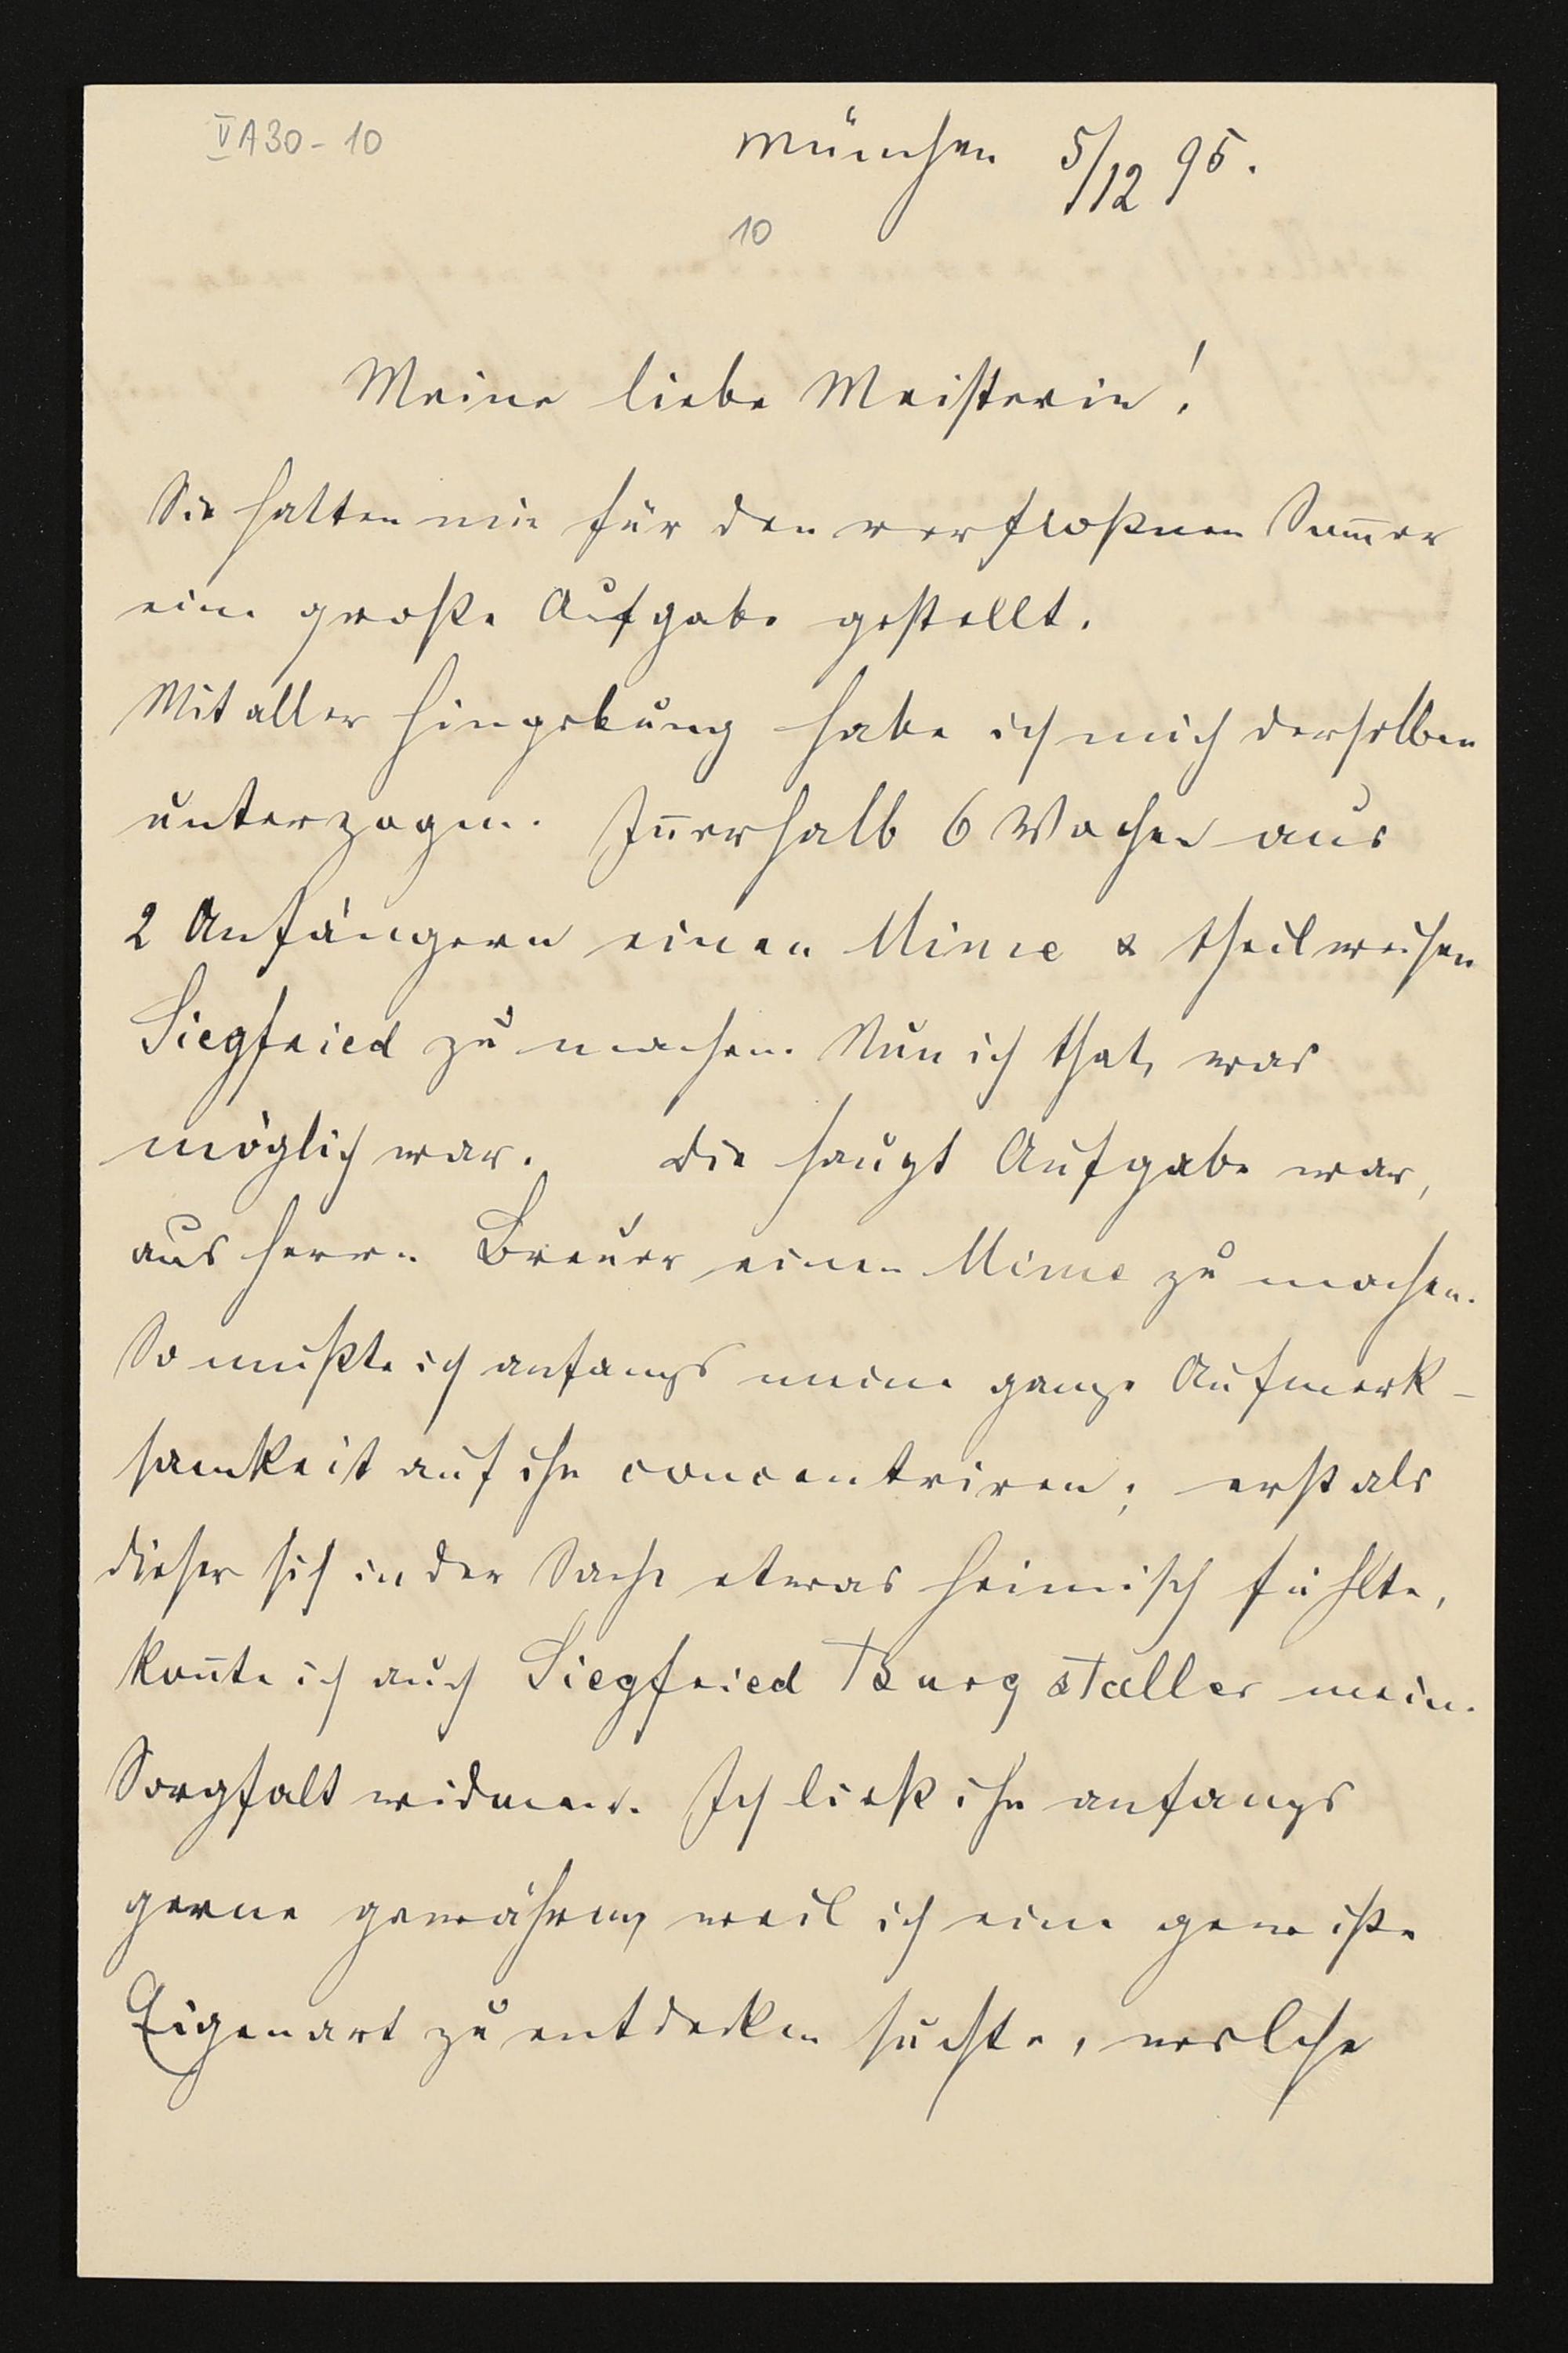 V A 30 - 10
München 5/12 95.
10
Meine liebe Meisterin!
Sie hatten mir für den verfloßnen Som̄er
eine große Aufgabe gestellt.
Mit aller Hingebung habe ich mich derselben
unterzogen. In̄erhalb 6 Wochen aus
2 Anfängern einen Mime & theilweisen
Siegfried zu machen. Nun ich that, was
möglich war. Die Haupt Aufgabe war,
aus Herrn Breuer einen Mime zu machen.
So mußte ich anfangs meine ganze Aufmerk-
samkeit auf ihn concentriren; erst als
dieser sich in der Sache etwas heimisch fühlte,
kon̄te ich auch Siegfried Burgstaller meine
Sorgfalt widmen. Ich ließ ihn anfangs
gerne gewähren, weil ich eine gewiße
Eigenart zu entdecken suchte, welche